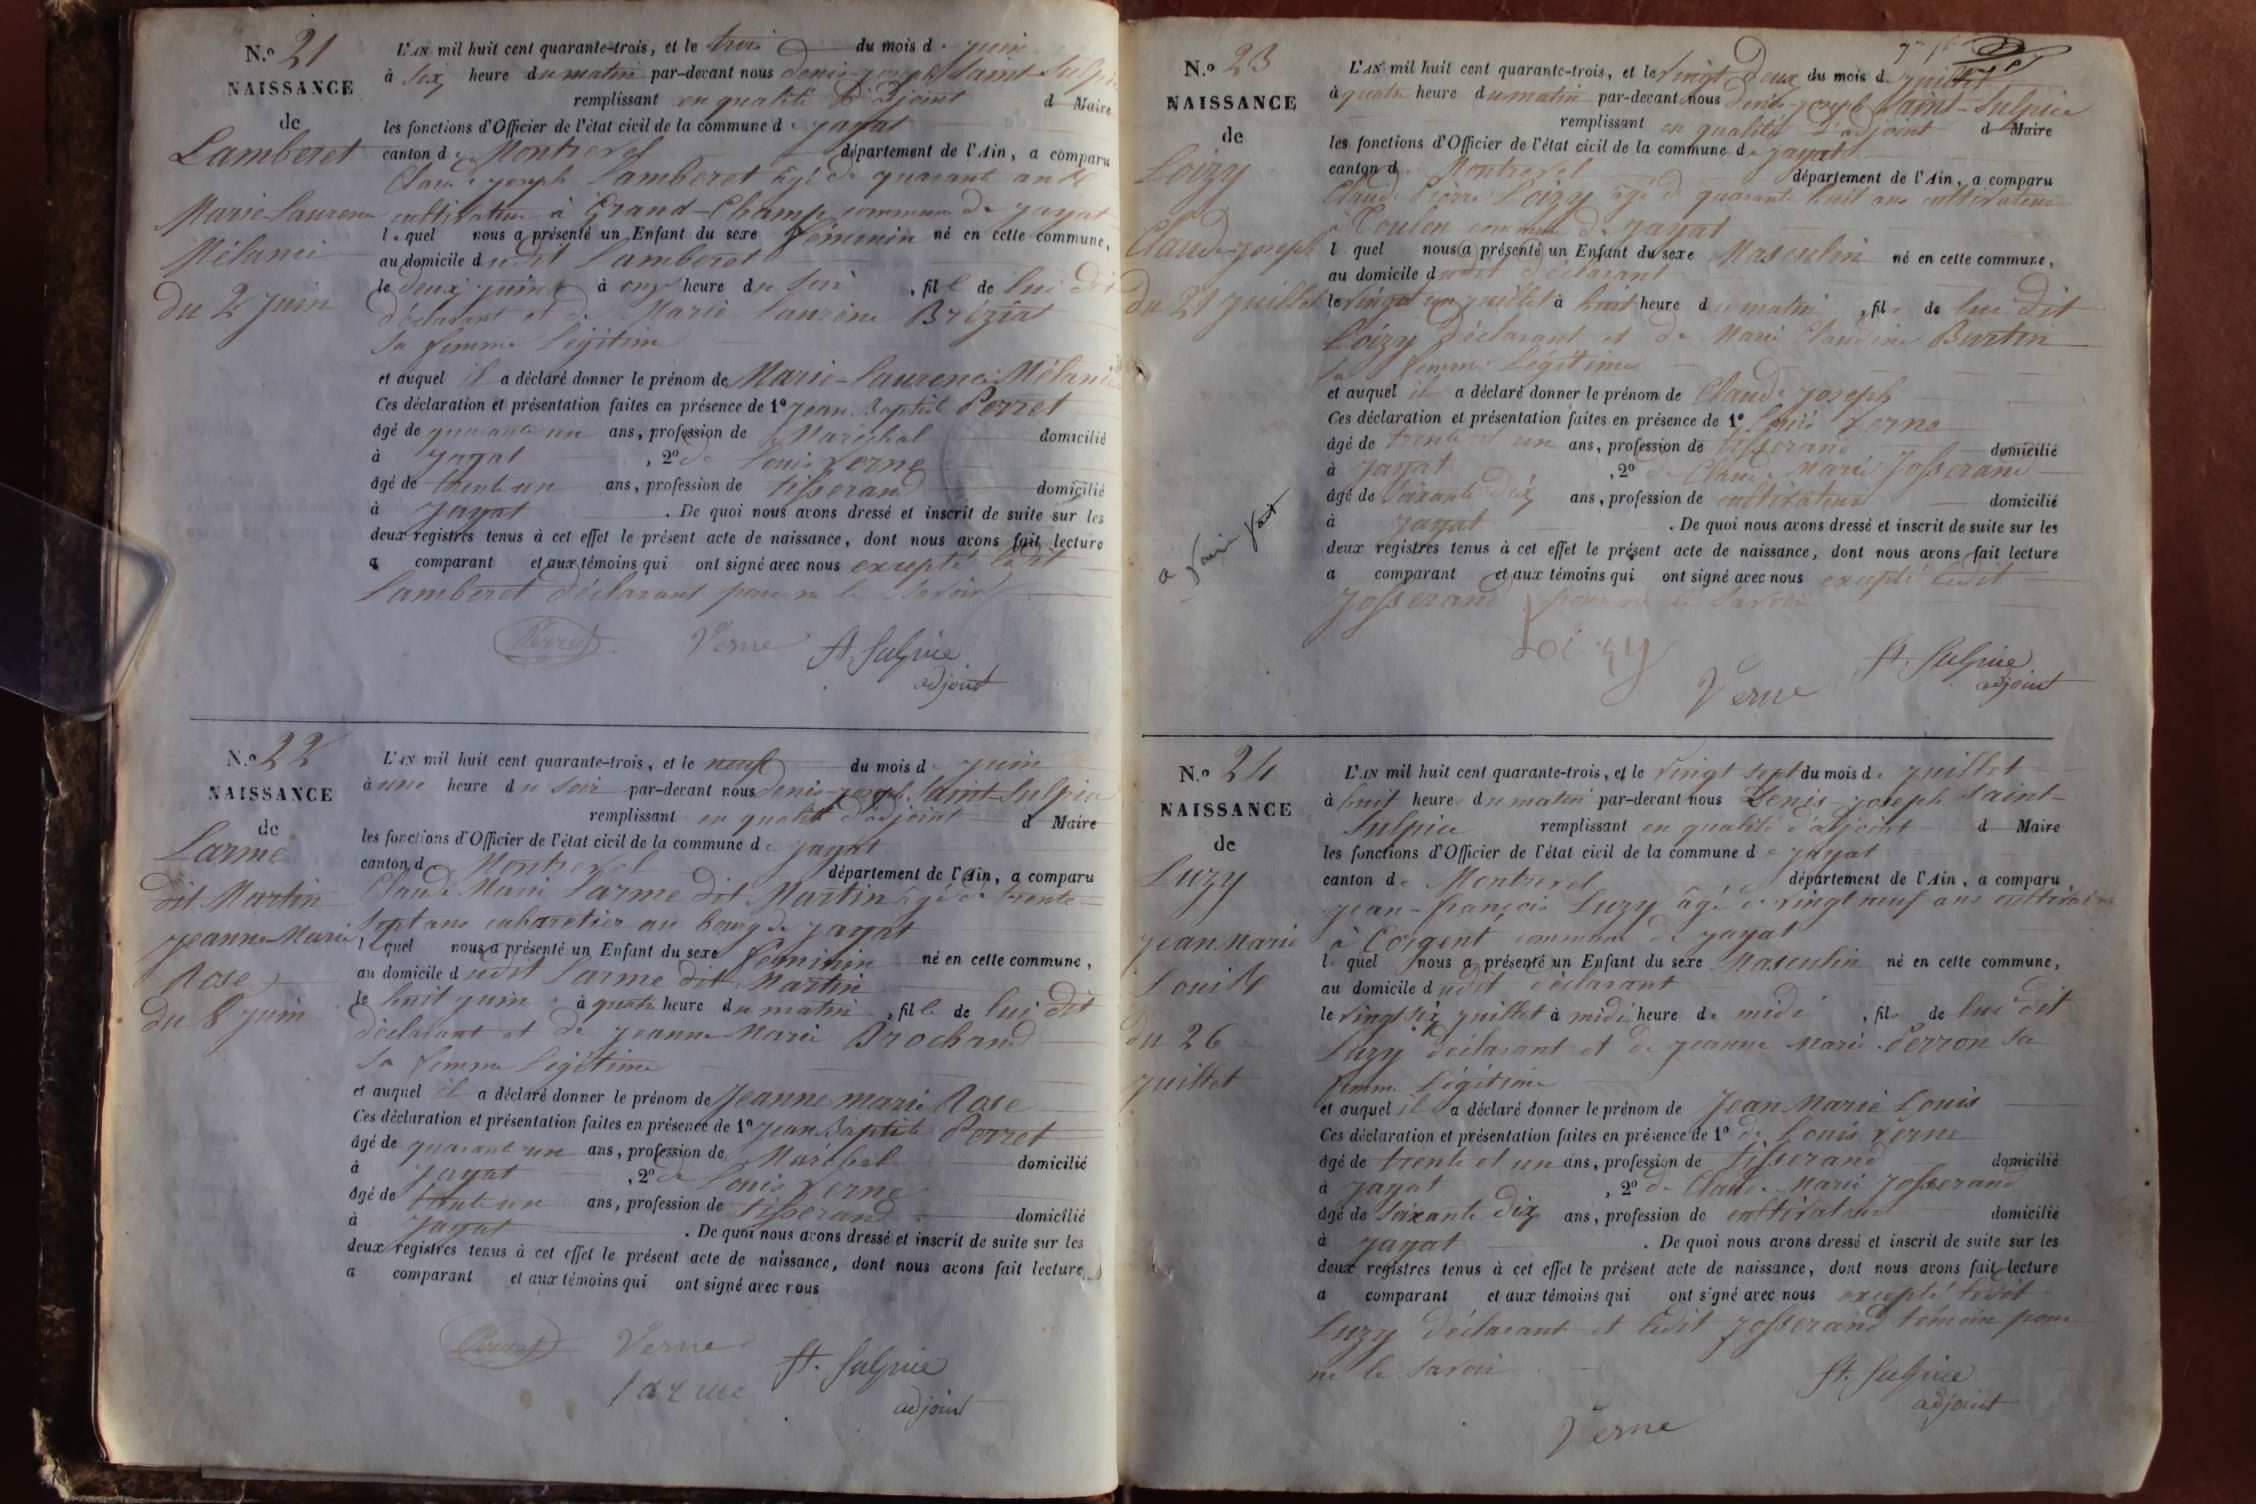 N.º 21
NAISSANCE
de
Lamberet
Marie-Laurence
Mélanie
du 2 juin
L'AN mil huit cent quarante-trois, et le trois du mois de juin
à six heure du matin par-devant nous Denis-joseph Saint-Sulpice
remplissant en qualité d'adjoint d Maire
les fonctions d'Officier de l'état civil de la commune de jayat
canton de Montrevel département de l'Ain, a comparu
Claude joseph Lamberet âgé de quarante ans
cultivateur à Grand-Champ commune de jayat
lequel nous a présenté un Enfant du sexe féminin né en cette commune,
au domicile dudit Lamberet
le deux juin à onze heure du soir, fille de lui dit
déclarant et de Marie Laurence Bréziat
sa femme légitime
et auquel il a déclaré donner le prénom de Marie-Laurence Mélanie
Ces déclaration et présentation faites en présence de 1º jean Baptiste Perret
âgé de quarante un ans, profession de Maréchal domicilié
à jayat, 2º de Louis Verne
âgé de trente un ans, profession de tisserand domicilié
à jayat. De quoi nous avons dressé et inscrit de suite sur les
deux registres tenus à cet effet le présent acte de naissance, dont nous avons fait lecture
a comparant et aux témoins qui ont signé avec nous excepté ledit
Lamberet déclarant pour ne le savoir
Perret Verne St. Sulpice
adjoint
N.º 22
NAISSANCE
de
Larme
dit Martin
jeanne Marie
Rose
du 8 juin
L'AN mil huit cent quarante-trois, et le neuf du mois de juin
à une heure du soir par-devant nous Denis-joseph Saint-Sulpice
remplissant en qualité d'adjoint d Maire
les fonctions d'Officier de l'état civil de la commune de jayat
canton d Montrevel département de l'Ain, a comparu
Claude Marie Larme dit Martin âgé de trente
sept ans cabaretier au bourg de jayat
lequel nous a présenté un Enfant du sexe féminin né en cette commune,
au domicile dudit Larme dit Martin
le huit juin à quatre heure du matin, fille de lui dit
déclarant et de jeanne Marie Brochand
sa femme légitime
et auquel il a déclaré donner le prénom de Jeanne marie Rose
Ces déclaration et présentation faites en présence de 1º jean Baptiste Perret
âgé de quarante un ans, profession de Maréchal domicilié
à jayat, 2º de Louis Verne
âgé de trente un ans, profession de tisserand domicilié
à jayat. De quoi nous avons dressé et inscrit de suite sur les
deux registres tenus à cet effet le présent acte de naissance, dont nous avons fait lecture
a comparant et aux témoins qui ont signé avec nous
Perret Verne St. Sulpice
larme adjoint
N.º 23
NAISSANCE
de
Loizy
Claude-joseph
du 21 juillet
L'AN mil huit cent quarante-trois, et le vingt deux du mois de juillet
à quatre heure du matin par-devant nous Denis-joseph Saint-Sulpice
remplissant en qualité d'adjoint d Maire
les fonctions d'Officier de l'état civil de la commune de jayat
canton d Montrevel département de l'Ain, a comparu
Claude Pierre Loizy âgé de quarante huit ans cultivateur
à Toulon commune de jayat
lequel nous a présenté un Enfant du sexe Masculin né en cette commune,
au domicile dudit déclarant
le vingt un juillet à huit heure du matin, fils de lui dit
Loizy déclarant et de Marie Claudine Burtin
sa femme légitime
et auquel il a déclaré donner le prénom de Claude joseph
Ces déclaration et présentation faites en présence de 1º Louis Verne
âgé de trente et un ans, profession de tisserand domicilié
à jayat, 2º de Claude Marie Josserand
âgé de soixante dix ans, profession de cultivateur domicilié
à jayat. De quoi nous avons dressé et inscrit de suite sur les
deux registres tenus à cet effet le présent acte de naissance, dont nous avons fait lecture
a comparant et aux témoins qui ont signé avec nous excepté ledit
Josserand pour ne le savoir
Loizy
Verne St. Sulpice
adjoint
N.º 24
NAISSANCE
de
Luzy
jean Marie
Louis
du 26
juillet
L'AN mil huit cent quarante-trois, et le vingt sept du mois de juillet
à huit heure du matin par-devant nous Denis joseph Saint-
Sulpice remplissant en qualité d'adjoint d Maire
les fonctions d'Officier de l'état civil de la commune de jayat
canton de Montrevel département de l'Ain, a comparu
jean-françois Luzy âgé de vingt neuf ans cultivateur
à Corgent commune de jayat
lequel nous a présenté un Enfant du sexe Masculin né en cette commune,
au domicile dudit déclarant
le vingt six juillet à midi heure de midi, fils de lui dit
Luzy déclarant et de jeanne Marie Perron sa
femme légitime
et auquel il a déclaré donner le prénom de Jean Marie Louis
Ces déclaration et présentation faites en présence de 1º de Louis Verne
âgé de trente et un ans, profession de tisserand domicilié
à jayat, 2º de Claude Marie Josserand
âgé de soixante dix ans, profession de cultivateur domicilié
à jayat. De quoi nous avons dressé et inscrit de suite sur les
deux registres tenus à cet effet le présent acte de naissance, dont nous avons fait lecture
a comparant et aux témoins qui ont signé avec nous excepté ledit
Luzy déclarant et ledit Josserand témoin pour
ne le savoir St. Sulpice
adjoint
Verne